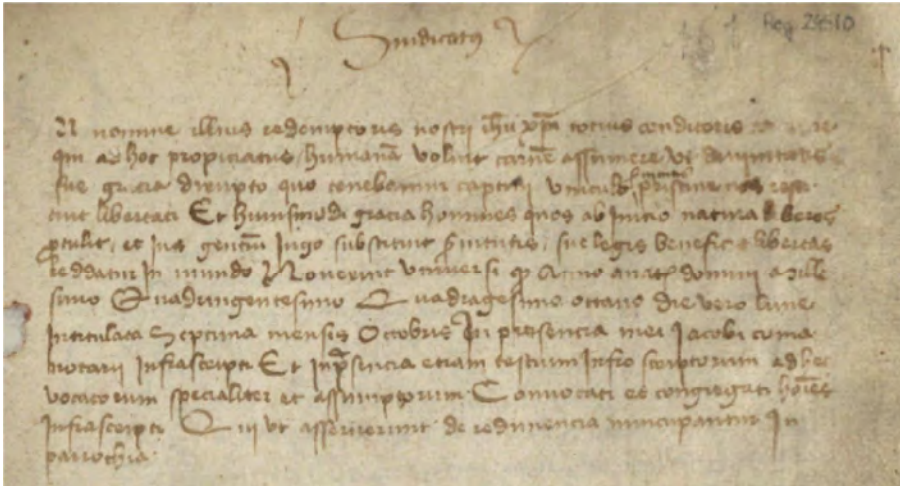 Sindicatus
Reg 2510
N nomine illius redemptoris nostri ihu xpi totius conditoris
qui ad hoc propiciatus humanã voluit carnẽ assumere ut divinitatis
sue gracia dirupto quo tenebamur captivi vinculo pristine nos resti
tuit libertati Et huiusmodi gracia homines quos ab inicio natura liberos
protulit et ius gentiũ iugo substituit servitutis sue legis beneficio libertas
reddatur In mundo Noverint Universi qp Anno a nat domini Mille
simo Quadringentesimo Quadragesimo octavo die vero lune
Intitulata Septima mensis Octobris In presencia mei Jacobi coma
notarii Infrascripti Et in presencia etiam testium Infra scriptorum ad hec
vocatorum specialiter et assumptorum Convocati et congregati hoies
Infrascripti Qui ut asseruerunt de redimencia nuncupantur In
parrochia